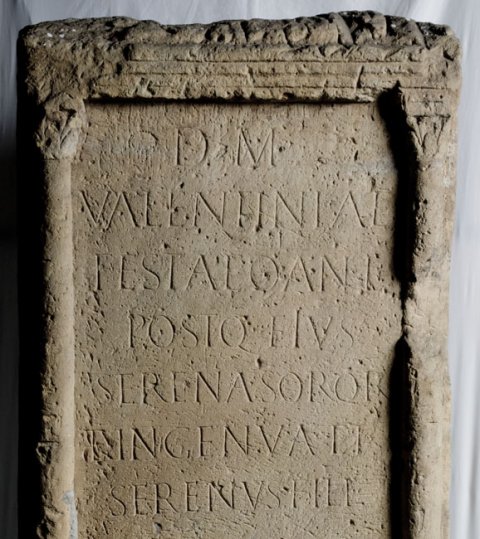 D M
VALENTINIAE
FESTAE O AN L
POSTQ EIVS
SERENA SOROR
ET INGENVA ET
SERENVS FILI